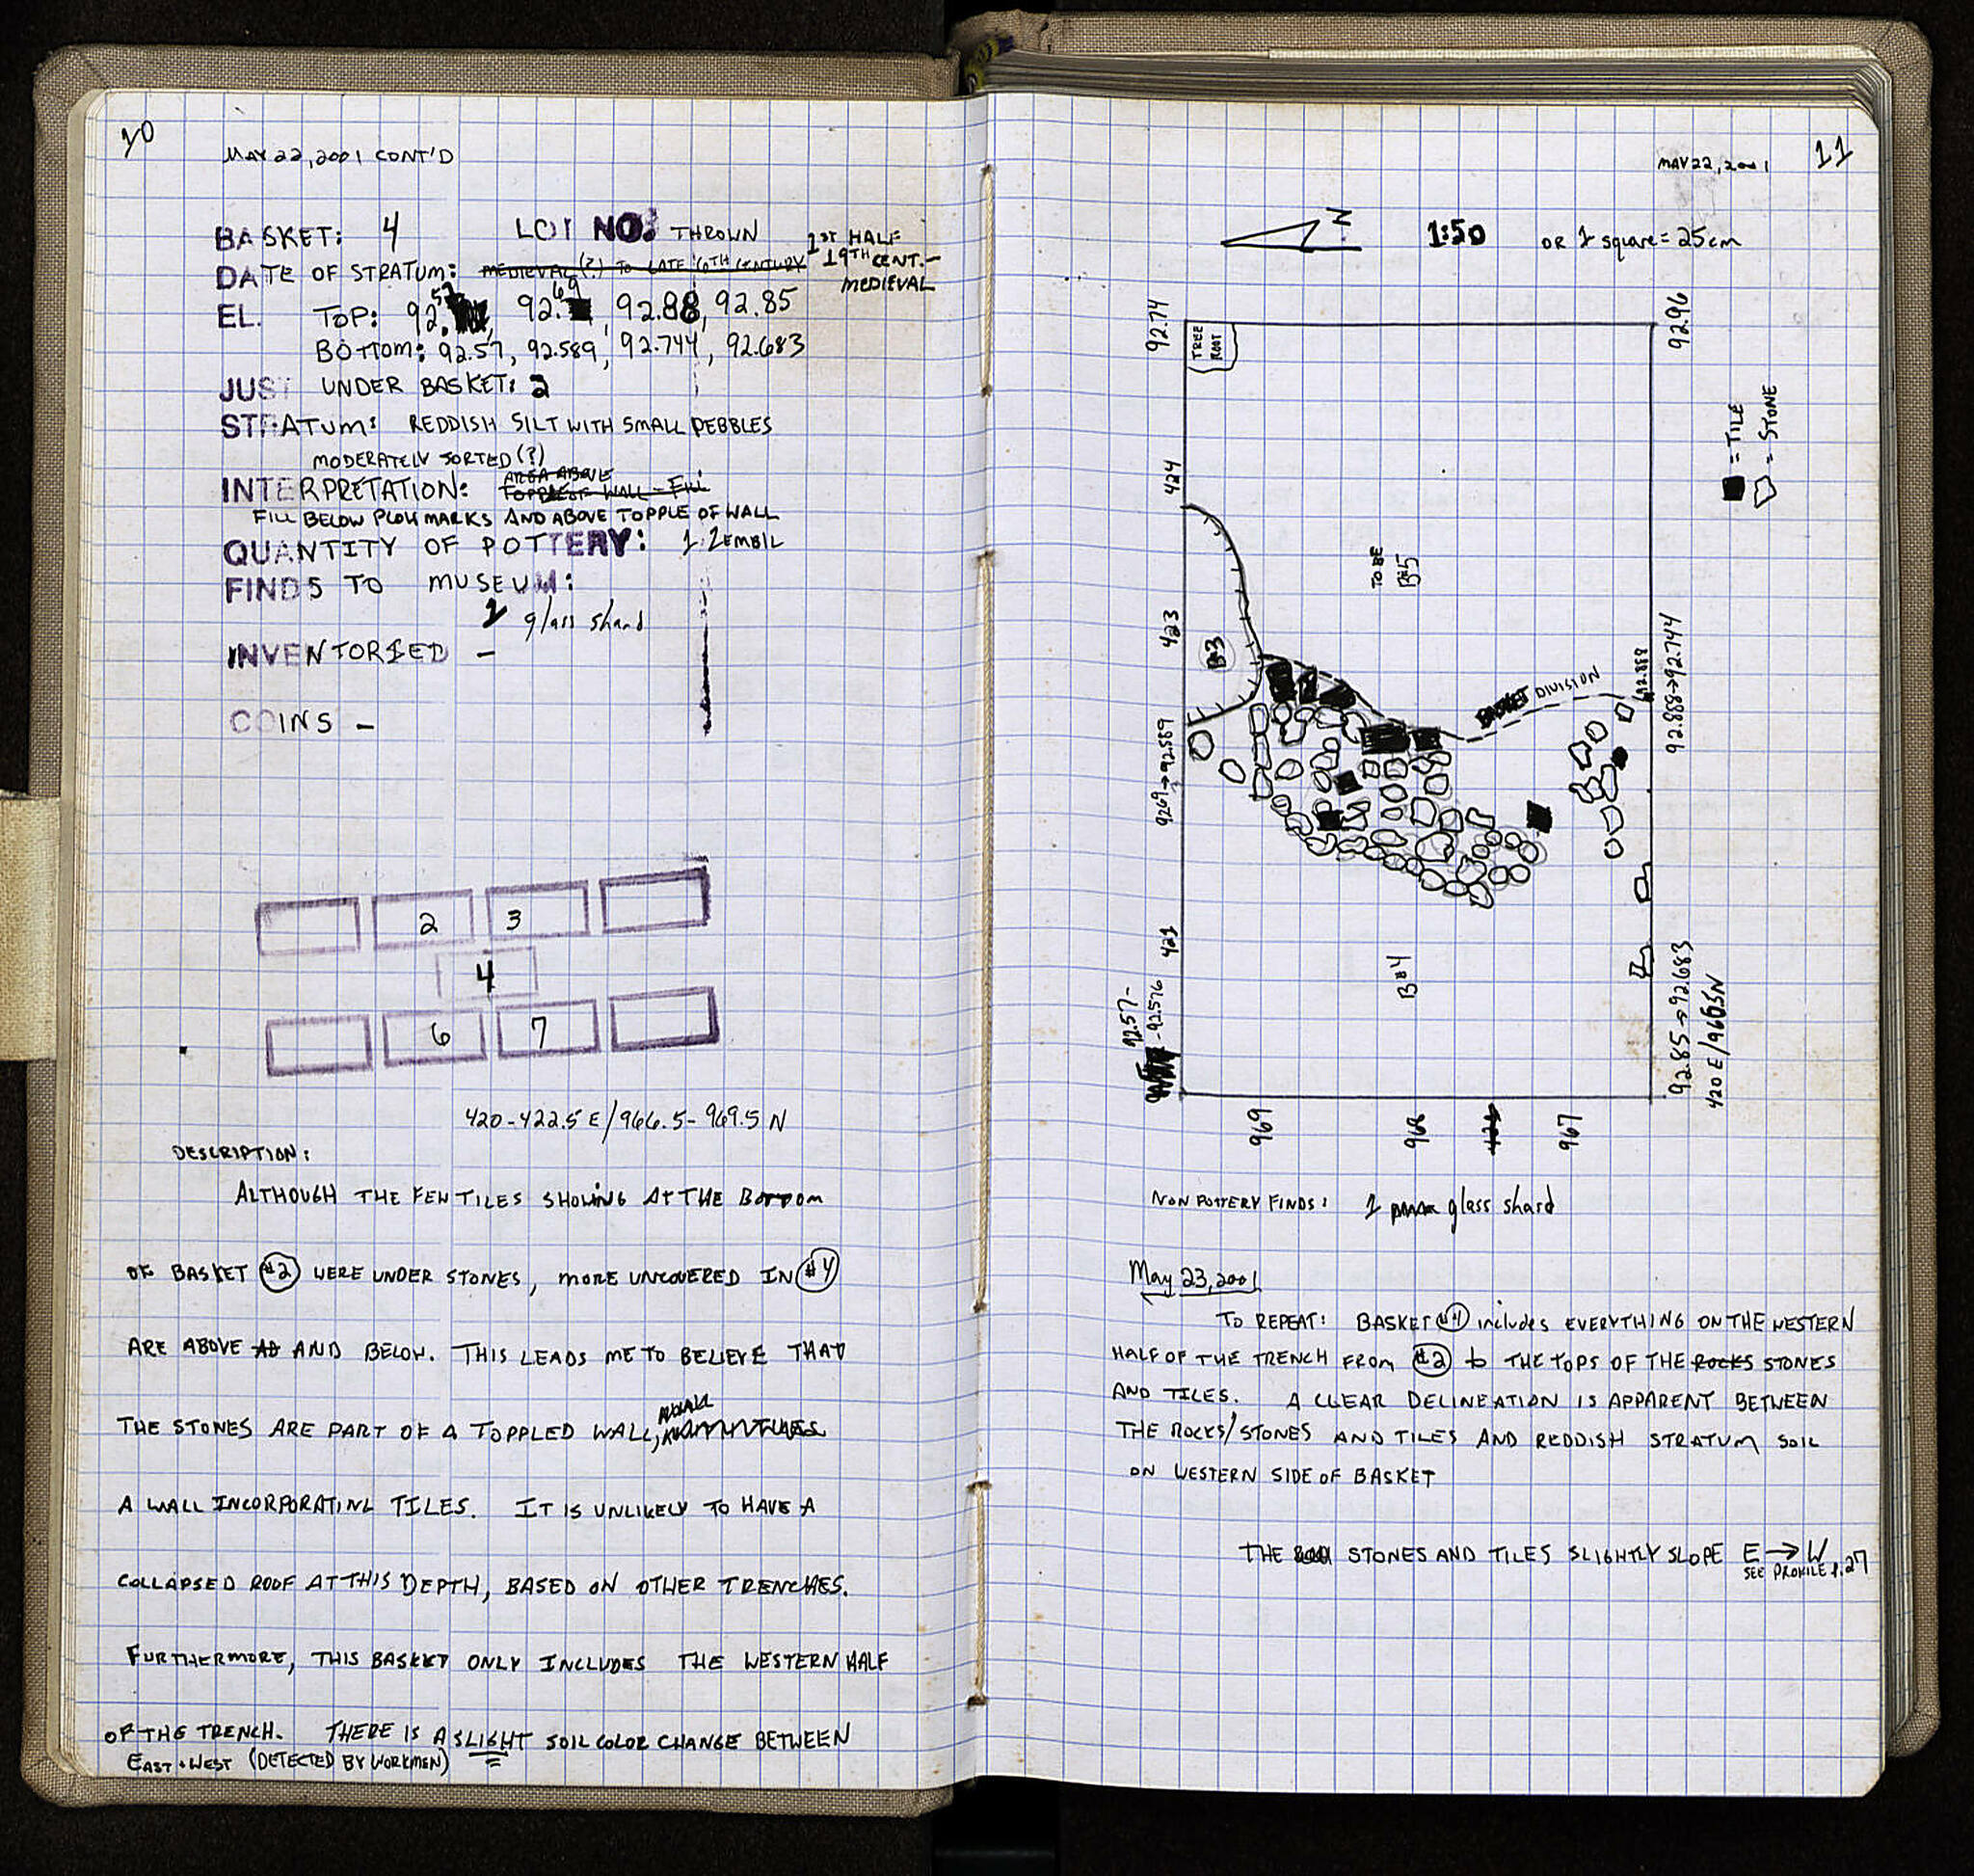 10
MAY 22, 2001 CONT'D
BASKET: 4 LOT NO: THROWN
DATE OF STRATUM: MEDIEVAL(?) TO LATE 16TH CENTURY 1ST HALF
19TH CENT.-
MEDIEVAL
EL. TOP: 92.57, 92.69, 92.88, 92.85
BOTTOM: 92.57, 92.589, 92.744, 92.683
JUST UNDER BASKET: 2
STRATUM: REDDISH SILT WITH SMALL PEBBLES
MODERATELY SORTED (?)
AREA ABOVE
INTERPRETATION: TOPPLE OF WALL - FILL
FILL BELOW PLOW MARKS AND ABOVE TOPPLE OF WALL
QUANTITY OF POTTERY: 1 ZEMBIL
FINDS TO MUSEUM:
1 glass shard
INVENTORIED -
COINS -
2 3
4
6 7
420-422.5 E/966.5-969.5 N
DESCRIPTION:
ALTHOUGH THE FEW TILES SHOWING AT THE BOTTOM
OF BASKET #2 WERE UNDER STONES, MORE UNCOVERED IN #4
ARE ABOVE AND BELOW. THIS LEADS ME TO BELIEVE THAT
THE STONES ARE PART OF A TOPPLED WALL,
A WALL INCORPORATING TILES. IT IS UNLIKELY TO HAVE A
COLLAPSED ROOF AT THIS DEPTH, BASED ON OTHER TRENCHES.
FURTHERMORE, THIS BASKET ONLY INCLUDES THE WESTERN HALF
OF THE TRENCH. THERE IS A SLIGHT SOIL COLOR CHANGE BETWEEN
EAST + WEST (DETECTED BY WORKMEN)
MAY 22, 2001 11
N
1:50 OR 1 square = 25cm
92.74
92.96
TREE
ROOT
■ = TILE
= STONE
424
TO BE
B#5
423
B#3
BASKET DIVISION
92.888
92.888→92.744
92.69→92.589
421
B#4
92.57-
92.576
92.85→92.683
420 E/966.5N
969
968
967
NON POTTERY FINDS: 1 glass shard
May 23, 2001
TO REPEAT: BASKET #4 includes EVERYTHING ON THE WESTERN
HALF OF THE TRENCH FROM #2 to THE TOPS OF THE ROCKS STONES
AND TILES. A CLEAR DELINEATION IS APPARENT BETWEEN
THE ROCKS/STONES AND TILES AND REDDISH STRATUM SOIL
ON WESTERN SIDE OF BASKET
THE STONES AND TILES SLIGHTLY SLOPE E→W
SEE PROFILE p.27